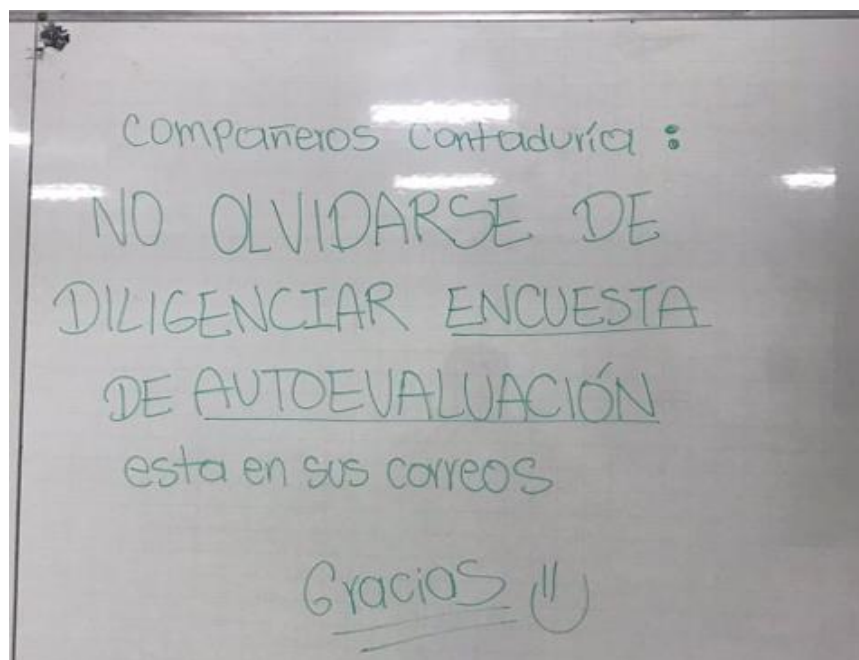 Compañeros Contaduría :
NO OLVIDARSE DE
DILIGENCIAR ENCUESTA
DE AUTOEVALUACIÓN
esta en sus correos
Gracias